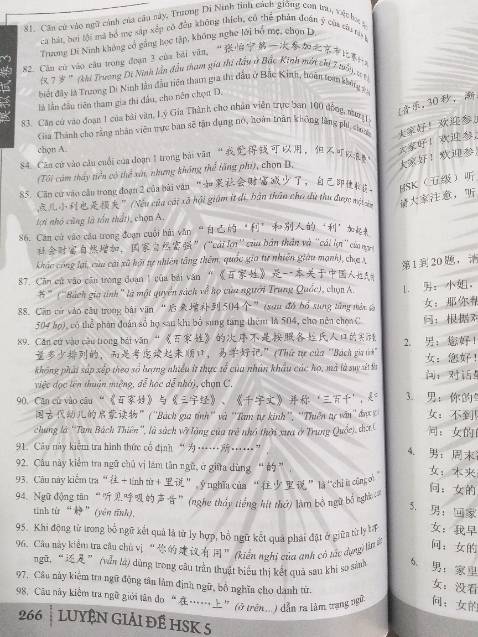 81. Căn cứ vào ngữ cảnh của câu này, Trương Di Ninh tính cách giống con trai,
ca hát, bơi lội mà bố mẹ sắp xếp cô đều không thích, có thể phán đoán ý của câu
Trương Di Ninh không cố gắng học tập, không nghe lời bố mẹ, chọn D.
82. Căn cứ vào câu trong đoạn 3 của bài văn, “张怡宁第一次参加北京市比赛
仅7岁” (khi Trương Di Ninh lần đầu tham gia thi đấu ở Bắc Kinh mới chỉ 7 tuổi),
biết đây là Trương Di Ninh lần đầu tiên tham gia thi đấu ở Bắc Kinh, hoàn toàn không
là lần đầu tiên tham gia thi đấu, cho nên chọn D.
83. Căn cứ vào đoạn 1 của bài văn, Lý Gia Thành cho nhân viên trực ban 100 đồng,
Gia Thành cho rằng nhân viên trực ban sẽ tận dụng nó, hoàn toàn không lãng phí,
chọn A.
84. Căn cứ vào câu cuối của đoạn 1 trong bài văn “我觉得钱可以用，但不可以浪费”
(Tôi cảm thấy tiền có thể xài, nhưng không thể lãng phí), chọn D.
85. Căn cứ vào câu trong đoạn 2 của bài văn “如果社会财富减少了，自己即使
点儿小利也是损失” (Nếu của cải xã hội giảm ít đi, bản thân cho dù thu được một
lợi nhỏ cũng là tổn thất), chọn A.
86. Căn cứ vào câu trong đoạn cuối bài văn “自己的‘利’和别人的‘利’加起来
社会财富自然增加，国家自然富强” (“cái lợi” của bản thân và “cái lợi” của người
khác cộng lại, của cải xã hội tự nhiên tăng thêm, quốc gia tự nhiên giàu mạnh), chọn A.
87. Căn cứ vào câu trong đoạn 1 của bài văn “《百家姓》是一本关于中国人姓氏的
书” (“Bách gia tính” là một quyển sách về họ của người Trung Quốc), chọn A.
88. Căn cứ vào câu trong bài văn “后来增补到504个” (sau đó bổ sung tăng thêm
504 họ), có thể phán đoán số họ sau khi bổ sung tăng thêm là 504, cho nên chọn C.
89. Căn cứ vào câu trong bài văn “《百家姓》的次序不是按照各姓氏人口的实际数
量多少排列的，而是考虑读起来顺口，易学好记” (Thứ tự của “Bách gia tính”
không phải sắp xếp theo số lượng nhiều ít thực tế của nhân khẩu các họ, mà là suy xét
việc đọc lên thuận miệng, dễ học dễ nhớ), chọn C.
90. Căn cứ vào câu “《百家姓》与《三字经》、《千字文》并称‘三百千’，是
国古代幼儿的启蒙读物” (“Bách gia tính” và “Tam tự kinh”, “Thiên tự văn” được
chung là “Tam Bách Thiên”, là sách vỡ lòng của trẻ nhỏ thời xưa ở Trung Quốc), chọn
91. Câu này kiểm tra hình thức cố định “为……所……”.
92. Câu này kiểm tra ngữ chủ vị làm tân ngữ, ở giữa dùng “的”.
93. Câu này kiểm tra “往 + tính từ + 里说”, ý nghĩa của “往少里说” là “chí ít cũng
94. Ngữ động tân “听见呼吸的声音” (nghe thấy tiếng hít thở) làm bổ ngữ bổ nghĩa
tính từ “静” (yên tĩnh).
95. Khi động từ trong bổ ngữ kết quả là từ ly hợp, bổ ngữ kết quả phải đặt ở giữa từ ly hợp
96. Câu này kiểm tra câu chủ vị “你的建议有用” (kiến nghị của anh có tác dụng) làm
ngữ, “还是” (vẫn là) dùng trong câu trần thuật biểu thị kết quả sau khi so sánh.
97. Câu này kiểm tra ngữ động tân làm định ngữ, bổ nghĩa cho danh từ.
98. Câu này kiểm tra ngữ giới tân do “在……上” (ở trên...) dẫn ra làm trạng ngữ.
266 LUYỆN GIẢI ĐỀ HSK 5
模拟试卷 3
(音乐, 30秒,
大家好！欢迎参加
大家好！欢迎参加
大家好！欢迎参加
HSK (五级) 听
请大家注意，听
第1到20题，
1. 男：小姐，
女：那你
问：根据对
2. 男：您好！
女：您好！
问：对话
3. 男：你的
女：不到
问：女的
4. 男：周末
女：本来
问：女的
5. 男：国家
女：我早
问：女的
6. 男：家里
女：没看
问：女的